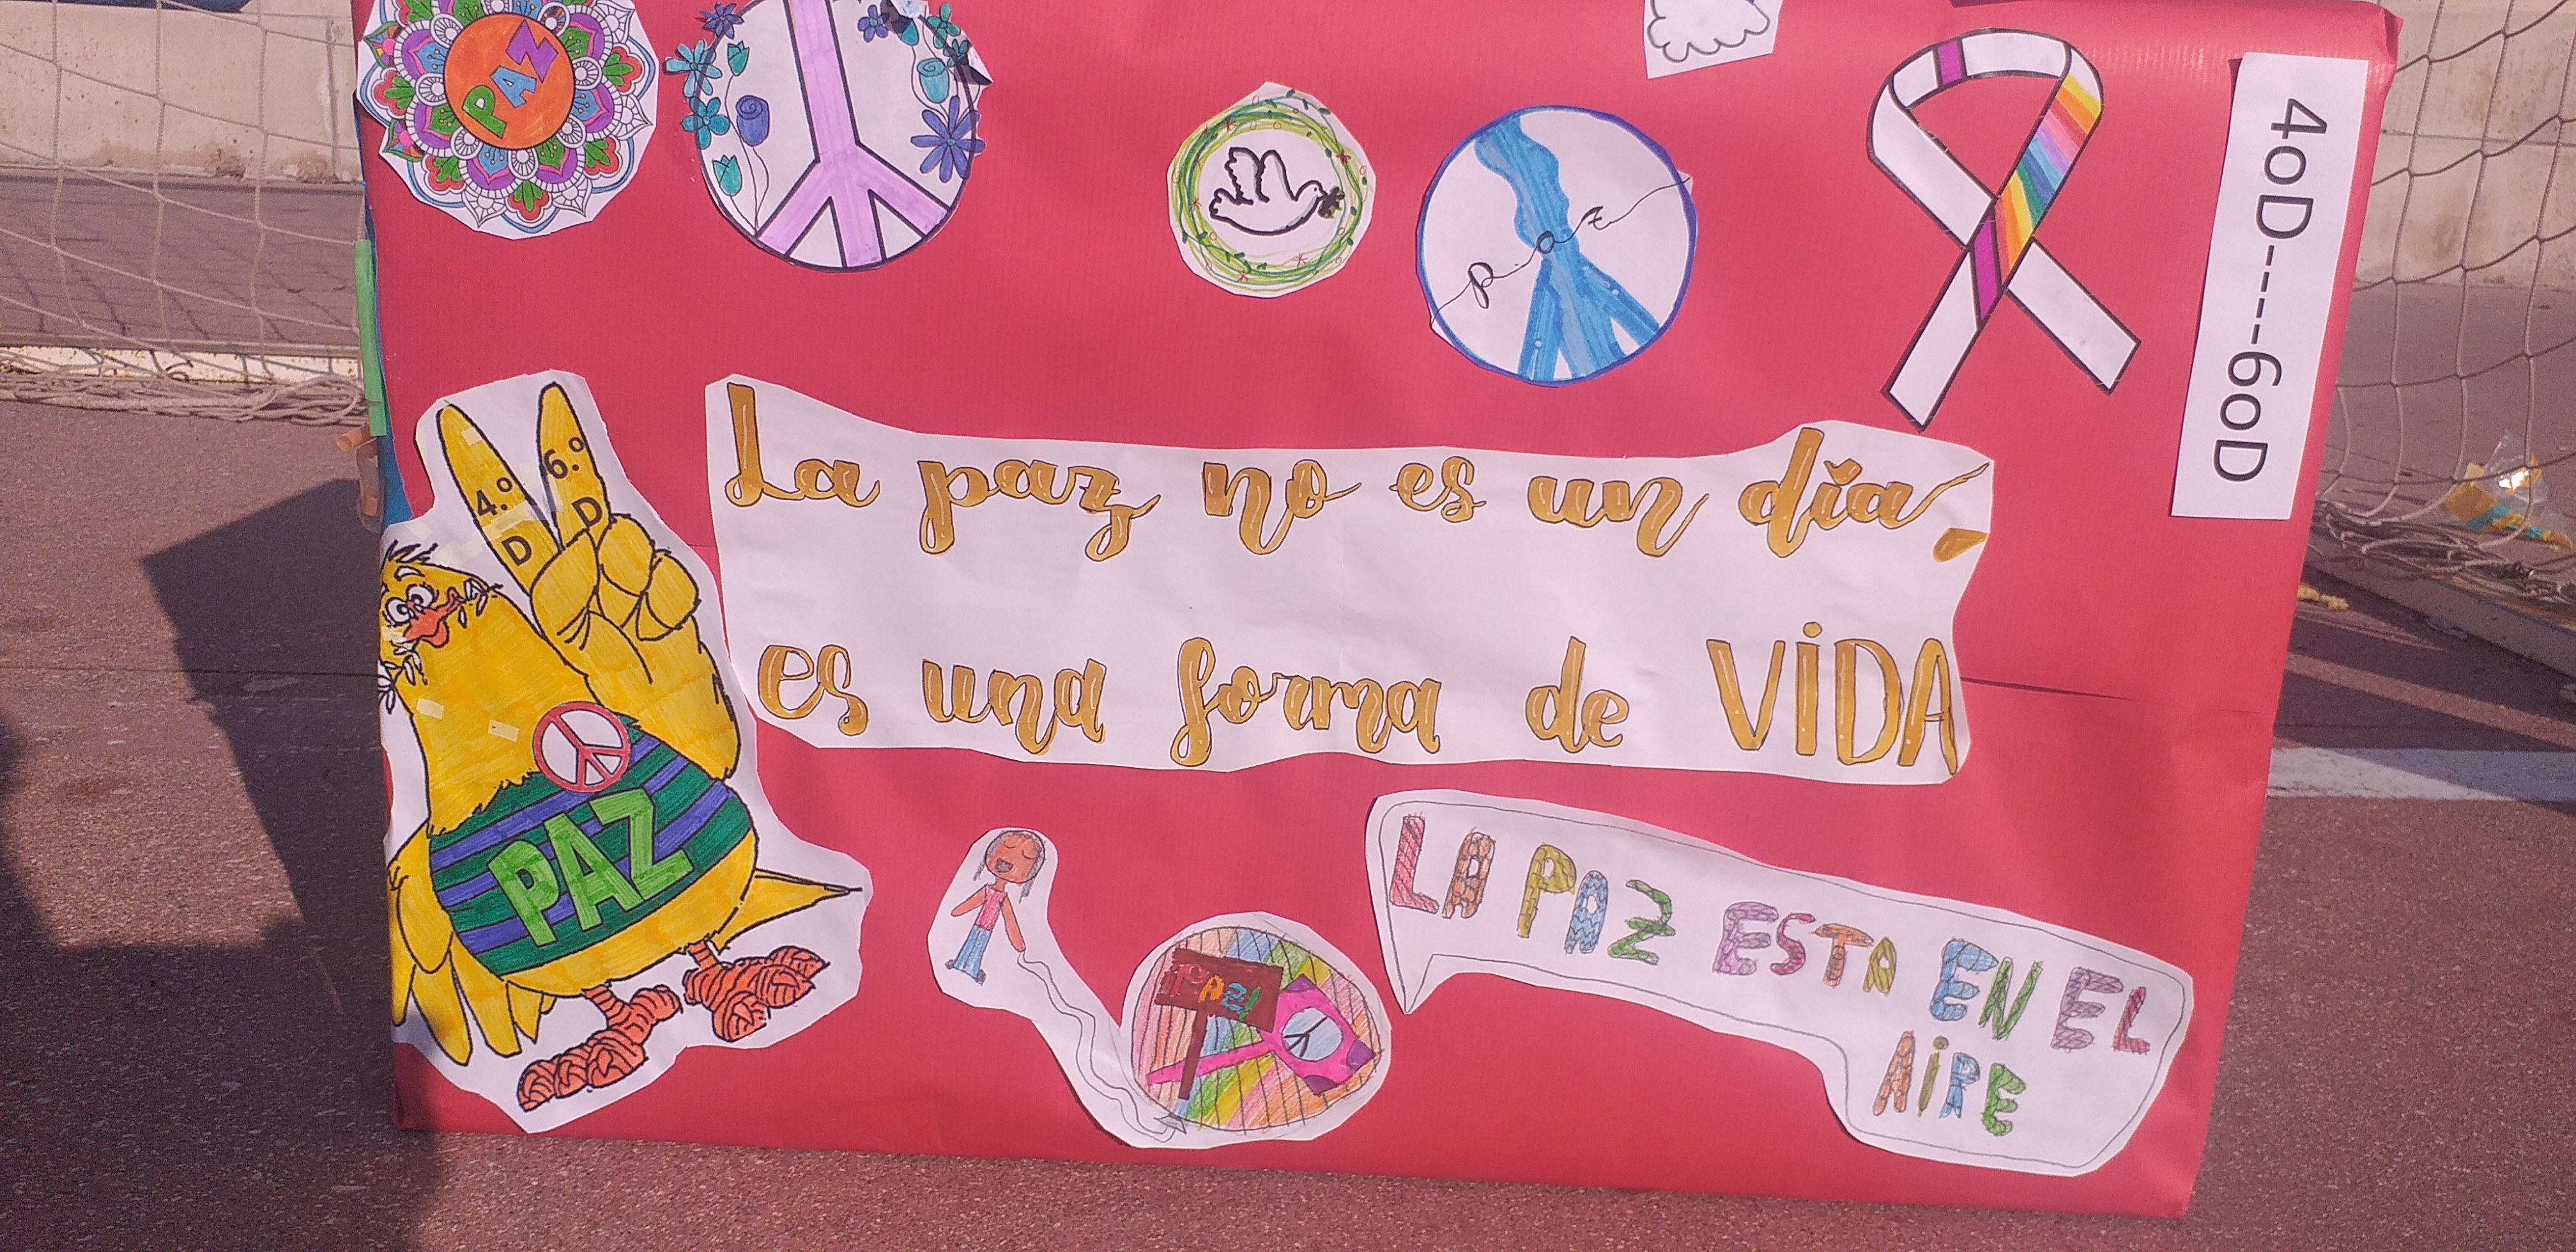 PAZ
paz
4oD----6oD
4.º D
6.º D
La paz no es un día,
es una forma de VIDA
PAZ
PAZ!
LA PAZ ESTA EN EL
AIRE